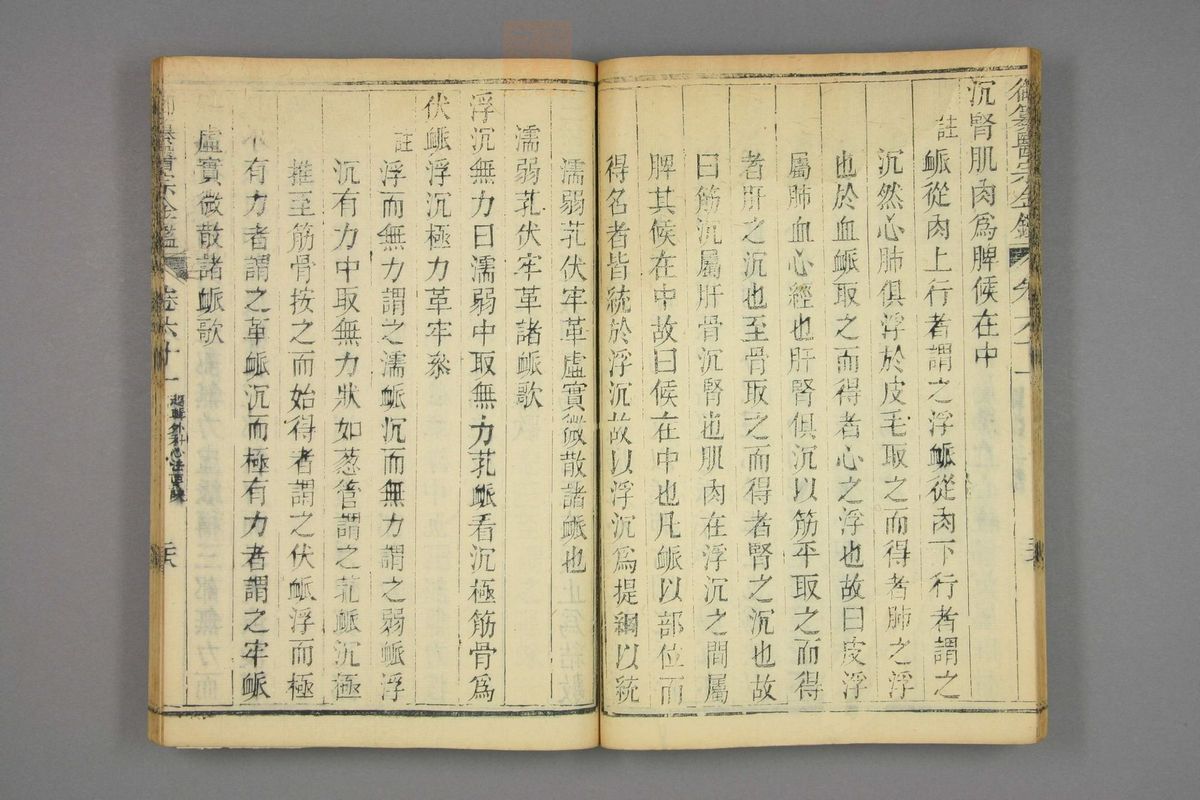 御纂醫宗金鑑
沉腎肌肉爲脾候在中
註脈從肉上行者謂之浮脈從肉下行者謂之
沉然心肺俱浮於皮毛取之而得者肺之浮
也於血脈取之而得者心之浮也故曰皮浮
屬肺血心經也肝腎俱沉以筋平取之而得
者肝之沉也至骨取之而得者腎之沉也故
曰筋沉屬肝骨沉腎也肌肉在浮沉之間屬
脾其候在中故曰候在中也凡脈以部位而
得名者皆統於浮沉故以浮沉爲提綱以統
濡弱芤伏牢革虛實微散諸脈也
濡弱芤伏牢革諸脈歌
浮沉無力曰濡弱中取無力芤脈看沉極筋骨爲
伏脈浮沉極力革牢叅
註浮而無力謂之濡脈沉而無力謂之弱脈浮
沉有力中取無力狀如葱管謂之芤脈沉極
推至筋骨按之而始得者謂之伏脈浮而極
有力者謂之革脈沉而極有力者謂之牢脈
虛實微散諸脈歌
御纂醫宗金鑑 卷六十一 編輯外科心法要訣